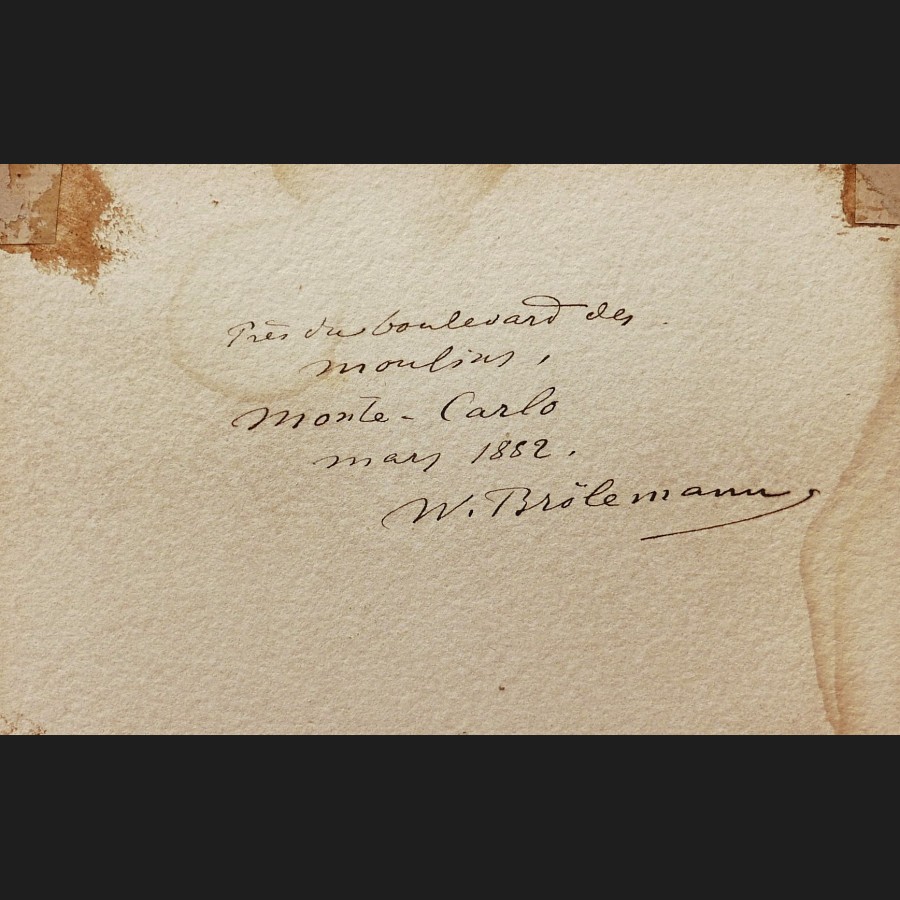 Près du boulevard des
moulins,
Monte-Carlo
mars 1882.
W. Brölemann